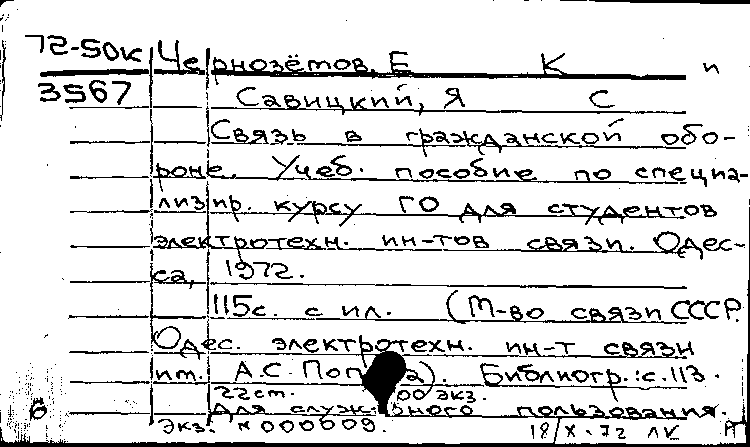 72-50к Чернозётов, Е К и
3567 Савицкий, Я С
Связь в гражданской обо-
роне. Учеб. пособие по специа-
лизир. курсу ГО для студентов
электротехн. ин-тов связи. Одес-
са, 1972.
115с. с ил. (М-во связи СССР.
Одес. электротехн. ин-т связи
им. А.С. Поп а). Библиогр.: с. 113.
22 см. 00 экз.
Для служебного пользования.
Экз. № 000009. 18/X-72 ЛК
б